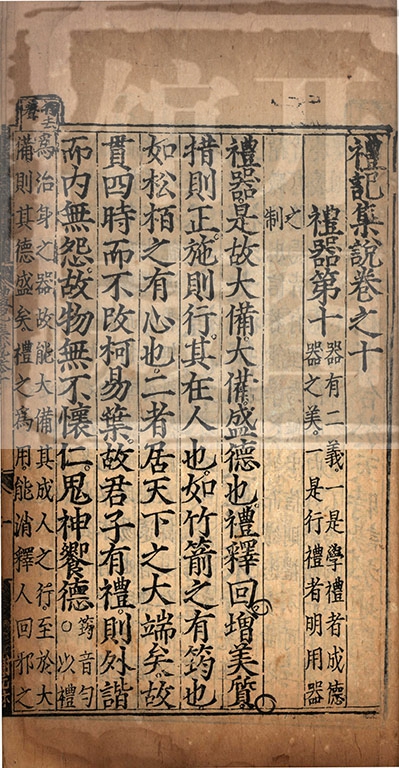 禮記集說卷之十
禮器第十
器有二義一是學禮者成德
器之美一是行禮者明用器
之
制
禮器。是故大備。大備。盛德也。禮釋回。增美質。
措則正。施則行。其在人也。如竹箭之有筠也
如松栢之有心也。二者居天下之大端矣。故
貫四時而不改柯易葉。故君子有禮。則外諧
而内無怨。故物無不懷仁。鬼神饗德。
筠音勻
○以禮
爲治身之器故能大備其成人之行至於大
備則其德盛矣禮之爲用能消釋人回邪之